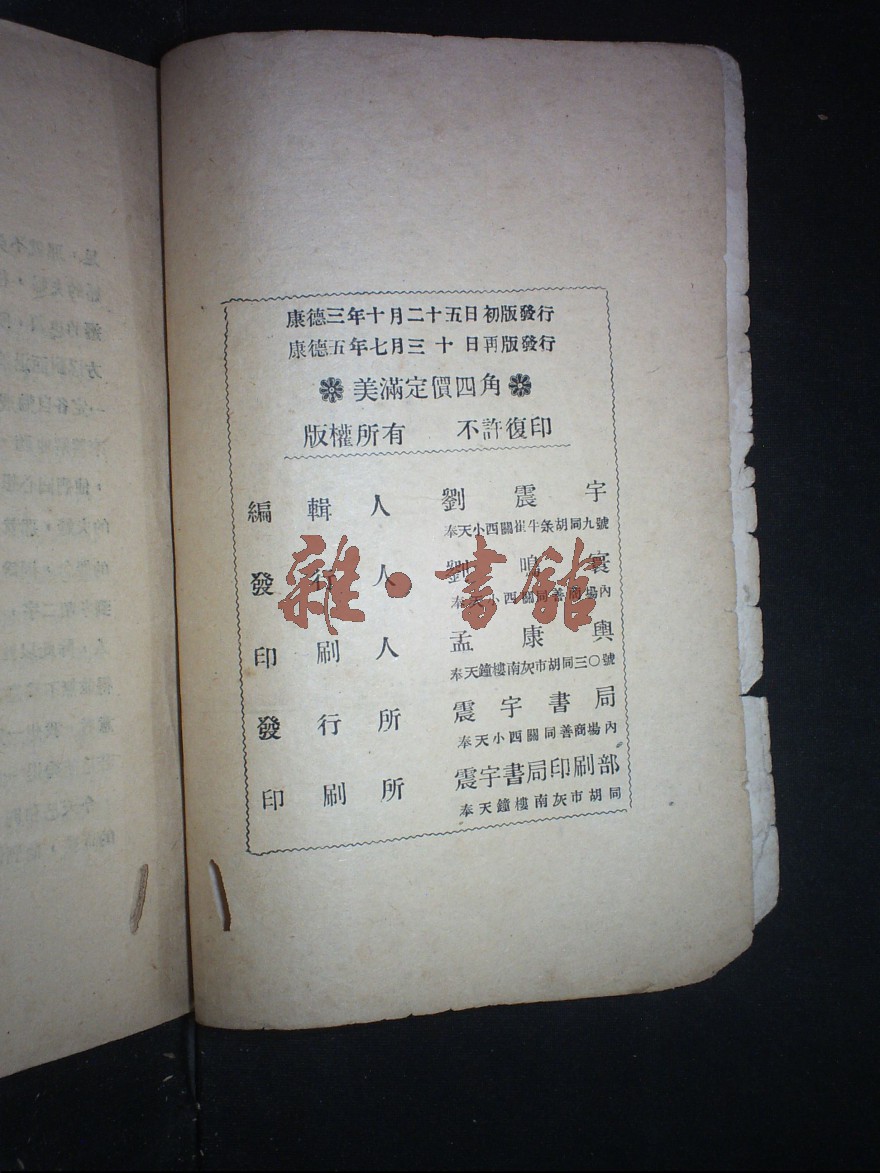 康德三年十月二十五日初版發行
康德五年七月三十日再版發行
美滿定價四角
版權所有 不許復印
編輯人 劉震宇
奉天小西關崔牛彔胡同九號
發行人 劉鳴寰
奉天小西關同善商場內
雜·書館
印刷人 孟康興
奉天鐘樓南灰市胡同三〇號
發行所 震宇書局
奉天小西關同善商場內
印刷所 震宇書局印刷部
奉天鐘樓南灰市胡同